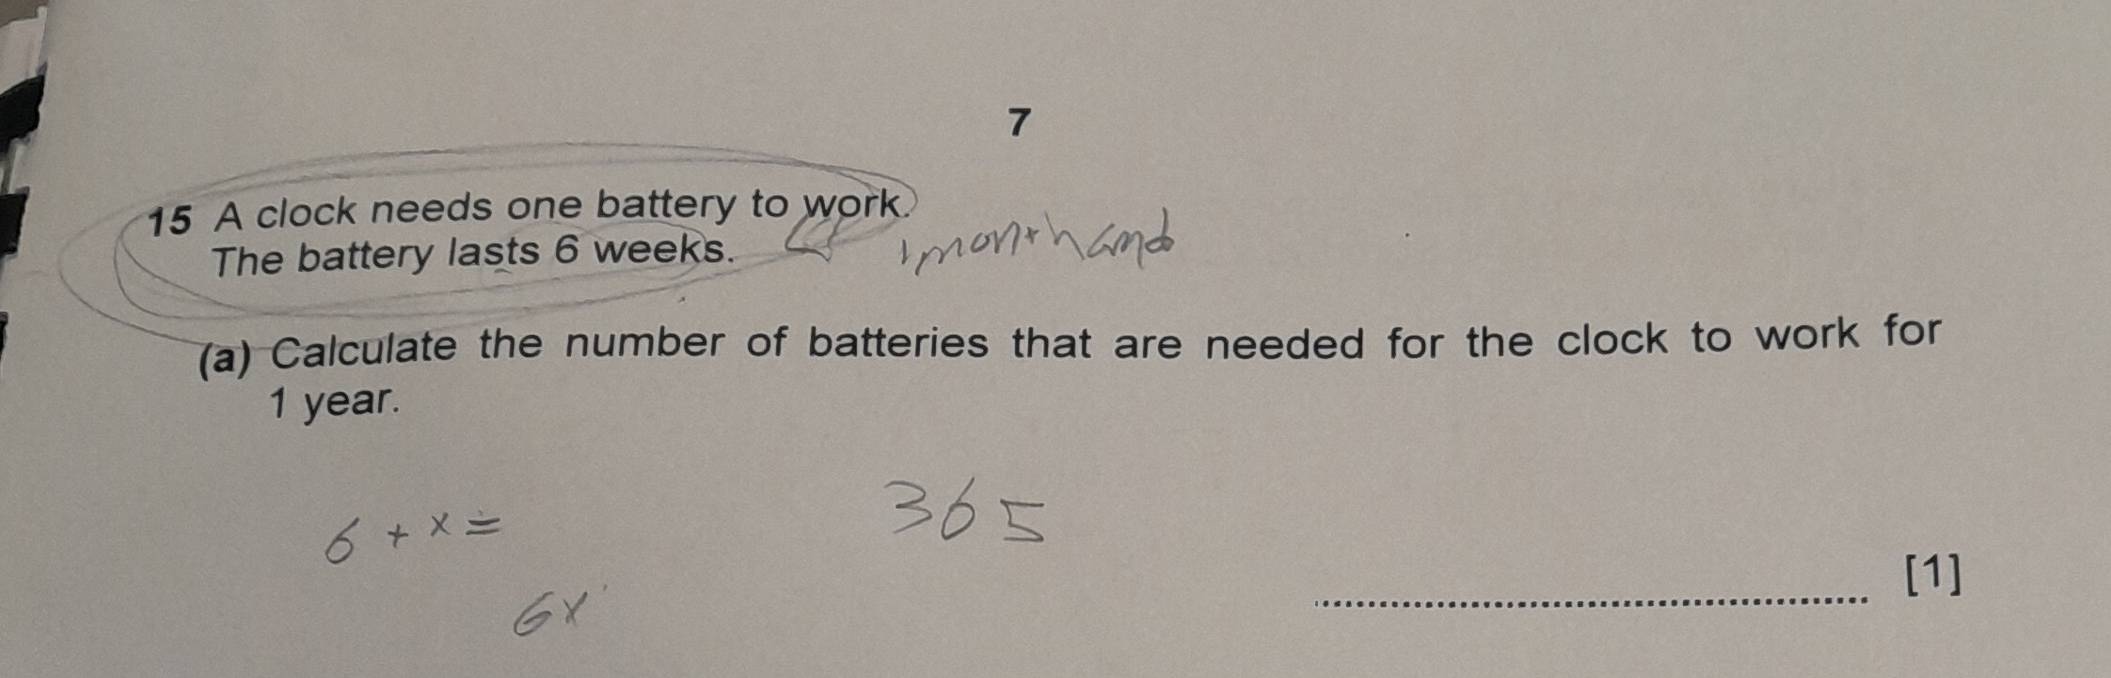 7
15 A clock needs one battery to work.
The battery lasts 6 weeks.
1 month and
(a) Calculate the number of batteries that are needed for the clock to work for
1 year.
6 + x =
365
6x
[1]